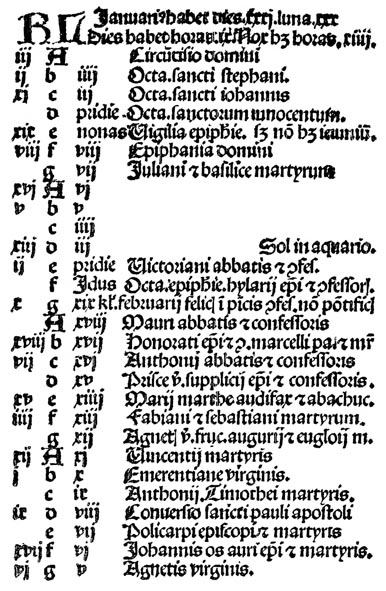 KL Januarius habet dies .xxxj. luna .xxx
Dies habet horas .ix. Nox hȝ horas .xiiij.
iij A Circuncisio domini
ij b iiij Octa. sancti stephani.
xj c iij Octa. sancti iohannis
d pridie Octa. sanctorum innocentum.
xix e nonas Uigilia epiphie. sȝ nō hȝ ieuniū.
viij f viij Epiphania domini
g vij Juliani ⁊ basilice martyrum
xvj A vj
v b v
c iiij
xiij d iij Sol in aquario.
ij e pridie Uictoriani abbatis ⁊ ꝯfes.
f Idus Octa. epiphie. hylarij ep̄i ⁊ ꝯfessorj.
x g xix kl. februarij felicj ī pīcis ꝯfes. nō pōtificj
A xviij Mauri abbatis ⁊ confessoris
xviij b xvij Honorati ep̄i ⁊ ꝯ. marcelli pa. ⁊ mr̄
vij c xvj Anthonij abbatis ⁊ confessoris
d xv Prisce v̄. supplicij ep̄i ⁊ confessoris.
xv e xiiij Marij marthe audifax ⁊ abachuc.
iiij f xiij Fabiani ⁊ sebastiani martyrum.
g xij Agnetj v̄. fruc. augurij ⁊ eugloij m.
xij A xj Uincentij martyris
j b x Emerentiane virginis.
c ix Anthonij. Timothei martyris.
ix d viij Conuersio sancti pauli apostoli
e vij Policarpi episcopi ⁊ martyris
xvij f vj Johannis os auri ep̄i ⁊ martyris.
vj g v Agnetis virginis.